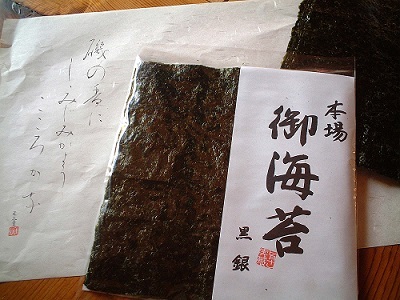 磯の香に
しみじみかよう
こころかな
本場
御海苔
黒銀